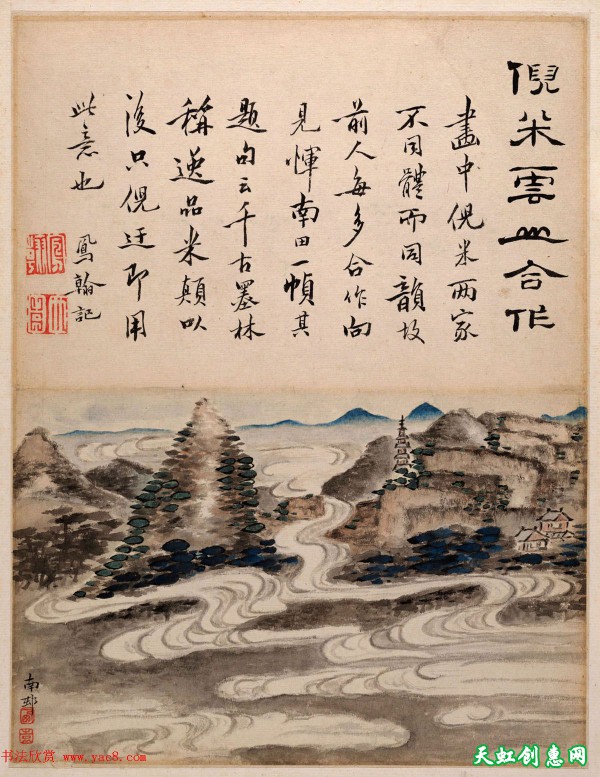 倪米雲山合作
畫中倪米兩家
不同體而同韻故
前人每多合作向
見惲南田一幀其
題句云千古墨林
稱逸品米顛以
後只倪迂即用
此意也 鳳翰記
南邨
书法欣赏 www.yac8.com
天虹创惠网